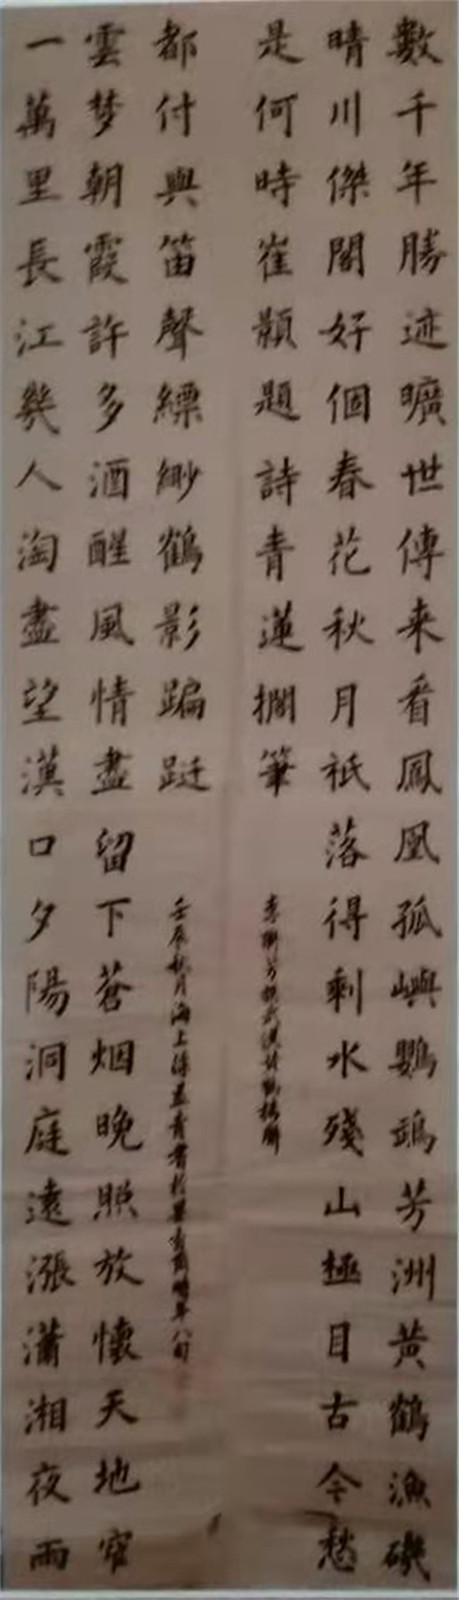 數千年勝迹曠世傳来看鳳凰孤嶼鸚鵡芳洲黃鶴漁磯
晴川傑閣好個春花秋月祇落得剩水殘山極目古今愁
是何時崔顥題詩青蓮擱筆
李聯芳撰武漢黃鶴樓聯
一萬里長江幾人淘盡望漢口夕陽洞庭遠漲瀟湘夜雨
雲梦朝霞許多酒醒風情盡留下苍烟晚照放懷天地窄
都付與笛聲縹緲鶴影蹁跹
壬辰秋月海上書於時年八旬